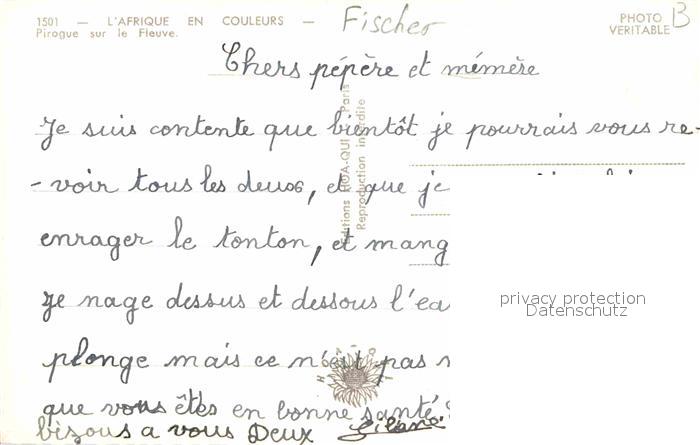 1501 — L'AFRIQUE EN COULEURS —
Pirogue sur le Fleuve.
Fischer
PHOTO
VERITABLE
B
Chers pépère et mémère
Je suis contente que bientôt je pourrais vous re-
- voir tous les deux, et que je
enrager le tonton, et mang
je nage dessus et dessous l'ea
plonge mais ce n'est pas
que vous êtes en bonne santé
bisous a vous Deux
Editions HOA-QUI Paris
Reproduction interdite
HOA-QUI
privacy protection
Datenschutz